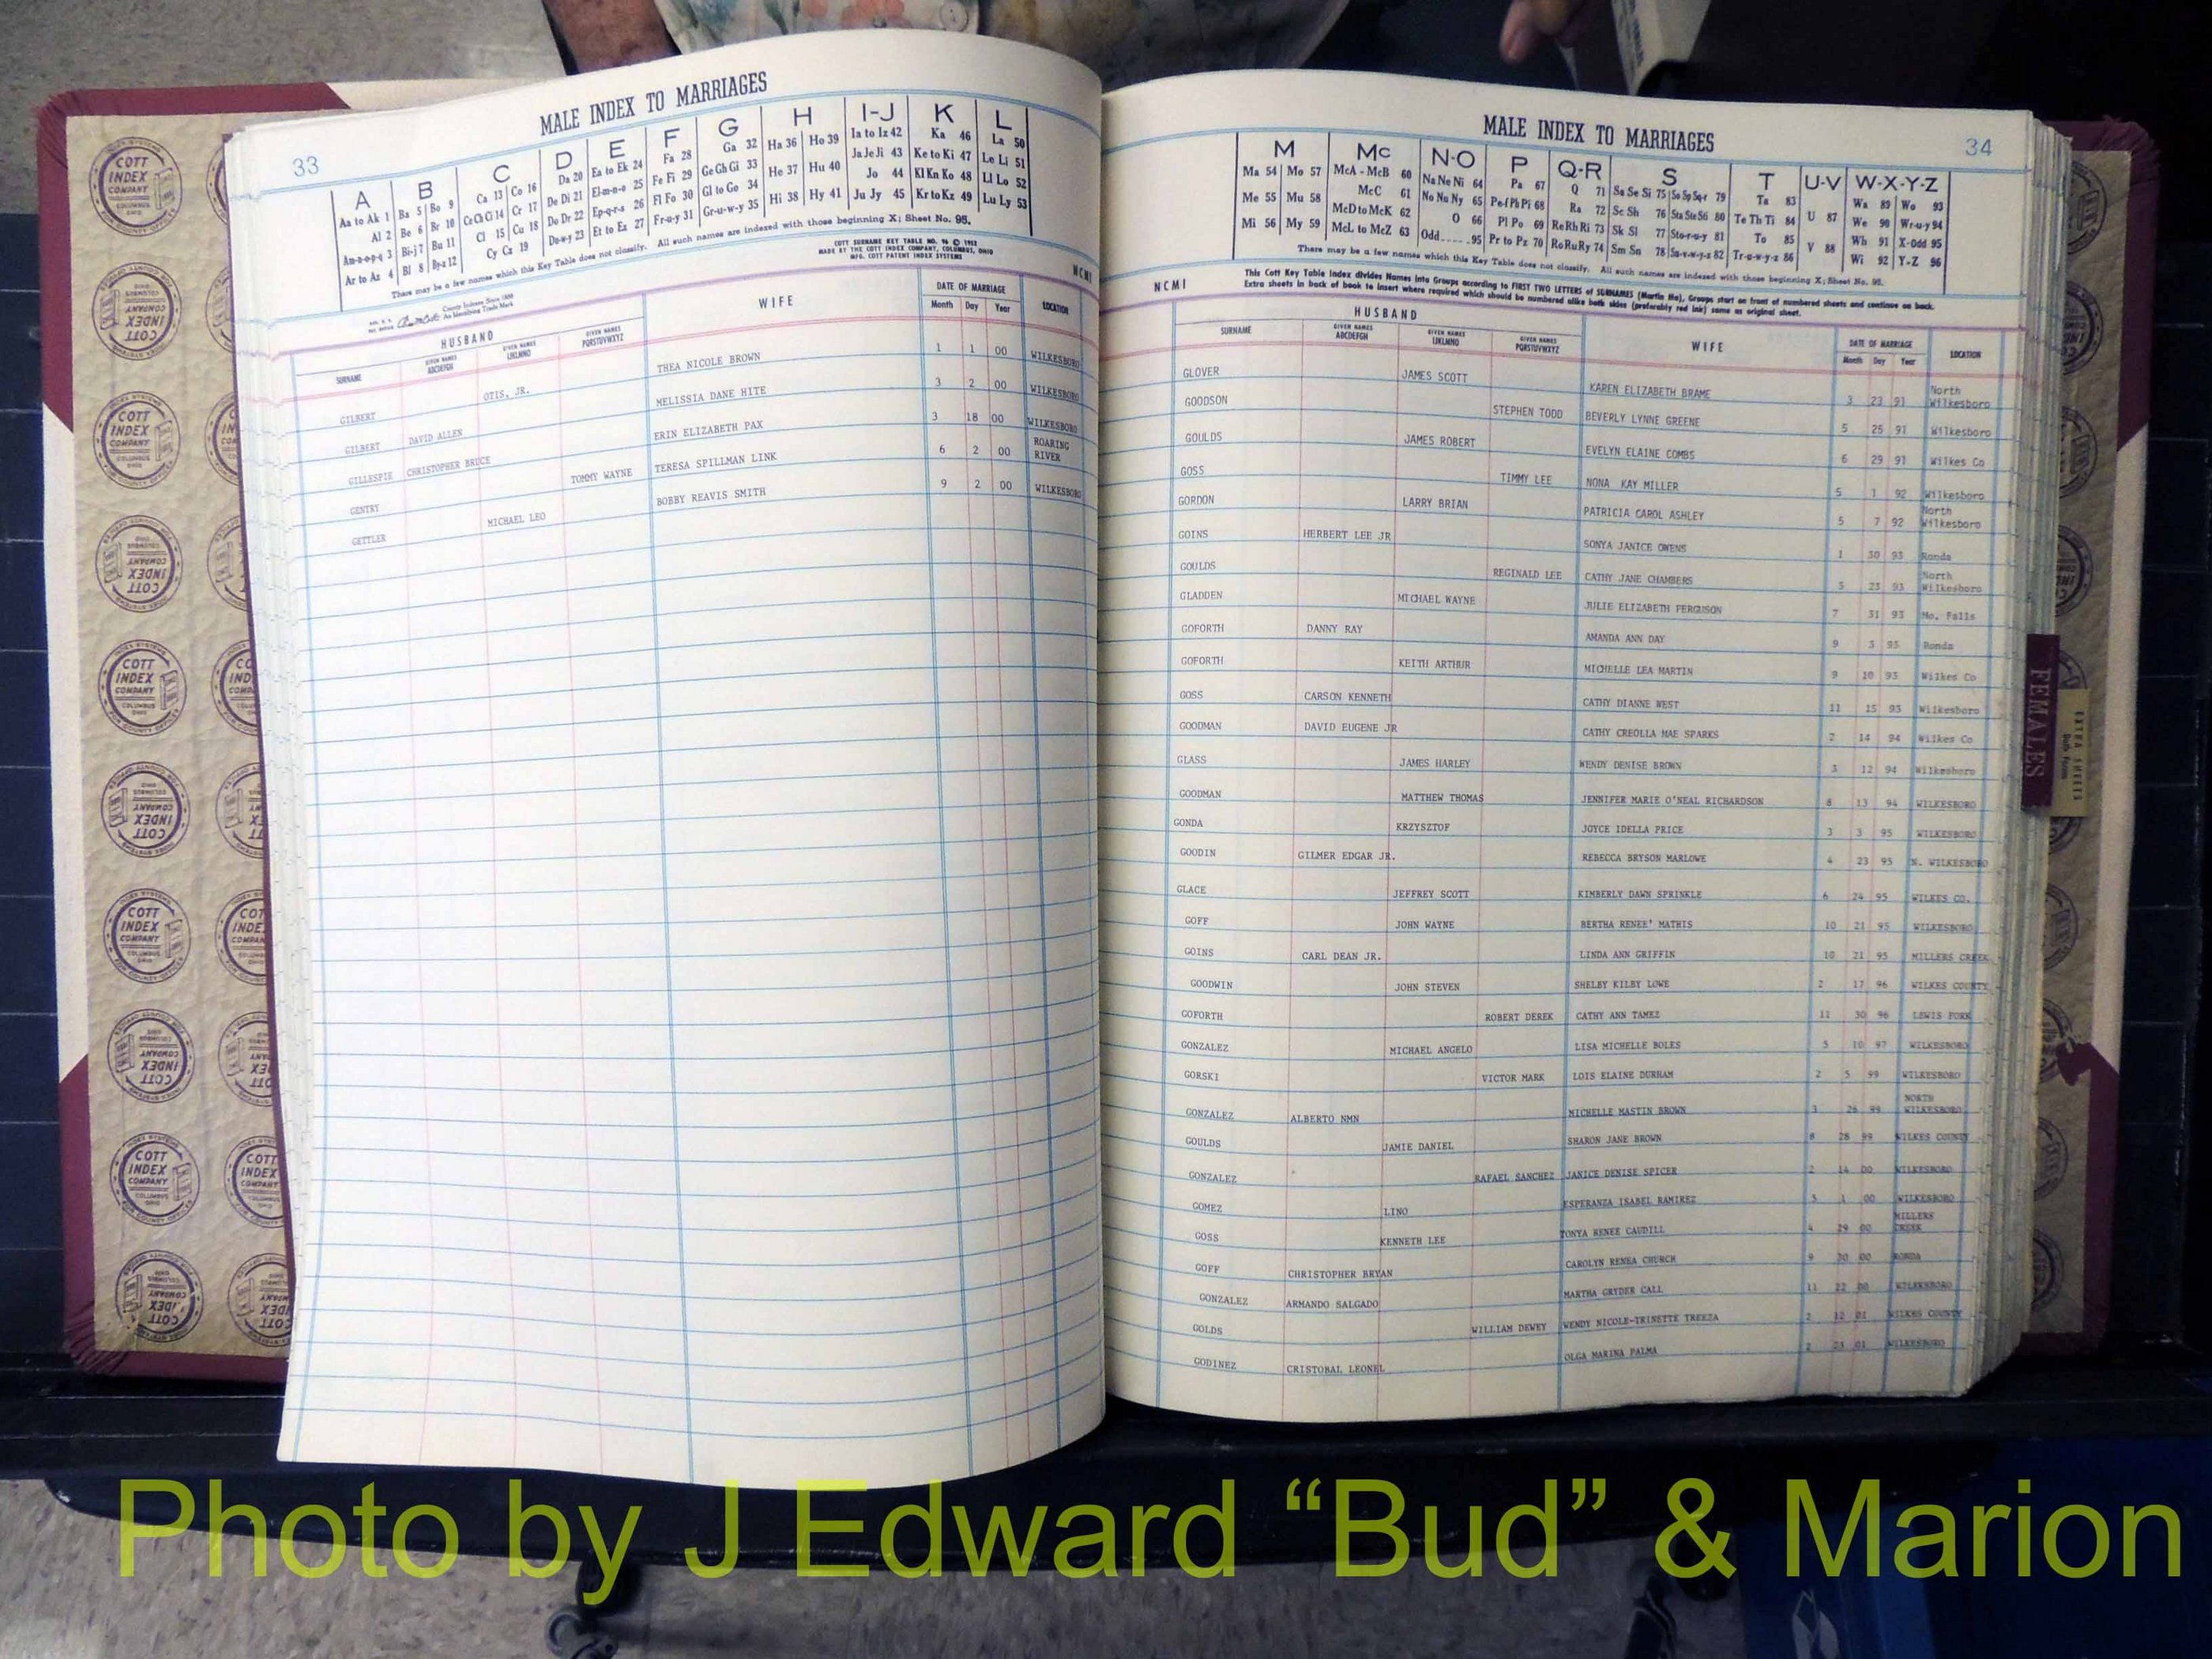 MALE INDEX TO MARRIAGES
33
A B C D E F G H I-J K L
Aa to Ak 1 Ba 5 Bo 9 Ca 13 Co 16 Da 20 Ea to Ek 24 Fa 28 Ga 32 Ha 36 Ho 39 Ia to Iz 42 Ka 46 La 50
Al 2 Be 6 Br 10 Ce Ch Ci 14 Cr 17 De Di 21 El-m-n-o 25 Fe Fi 29 Ge Gh Gi 33 He 37 Hu 40 Ja Je Ji 43 Ke to Ki 47 Le Li 51
Am-n-o-p-q 3 Bi-j 7 Bu 11 Cl 15 Cu 18 Do Dr 22 Ep-q-r-s 26 Fl Fo 30 Gl to Go 34 Hi 38 Hy 41 Jo 44 Kl Kn Ko 48 Ll Lo 52
Ar to Az 4 Bl 8 By-z 12 Cy Cz 19 Du-w-y 23 Et to Ez 27 Fr-u-y 31 Gr-u-w-y 35 Ju Jy 45 Kr to Kz 49 Lu Ly 53
There may be a few names which this Key Table does not classify. All such names are indexed with those beginning X; Sheet No. 95.
COTT SURNAME KEY TABLE NO. 96 © 1952
MADE BY THE COTT INDEX COMPANY, COLUMBUS, OHIO
MFG. COTT PATENT INDEX SYSTEMS
NCMI
County Indexes Since 1888
An Identifying Trade Mark
HUSBAND WIFE DATE OF MARRIAGE LOCATION
SURNAME GIVEN NAMES ABCDEFGH GIVEN NAMES IJKLMNO GIVEN NAMES PQRSTUVWXYZ Month Day Year
GILBERT OTIS, JR. THEA NICOLE BROWN 1 1 00 WILKESBORO
GILBERT DAVID ALLEN MELISSIA DANE HITE 3 2 00 WILKESBORO
GILLESPIE CHRISTOPHER BRUCE ERIN ELIZABETH PAX 3 18 00 WILKESBORO
GENTRY TOMMY WAYNE TERESA SPILLMAN LINK 6 2 00 ROARING RIVER
GETTLER MICHAEL LEO BOBBY REAVIS SMITH 9 2 00 WILKESBORO
MALE INDEX TO MARRIAGES
34
M Mc N-O P Q-R S T U-V W-X-Y-Z
Ma 54 Mo 57 McA - McB 60 Na Ne Ni 64 Pa 67 Q 71 Sa Se Si 75 So Sp Sq-r 79 Ta 83 Wa 89 Wo 93
Me 55 Mu 58 McC 61 No Nu Ny 65 Pe-f Ph Pi 68 Ra 72 Sc Sh 76 Sta Ste Sti 80 Te Th Ti 84 U 87 We 90 Wr-u-y 94
Mi 56 My 59 McD to McK 62 O 66 Pl Po 69 Re Rh Ri 73 Sk Sl 77 Sto-r-u-y 81 To 85 V 88 Wh 91 X-Odd 95
McL to McZ 63 Odd 95 Pr to Pz 70 Ro Ru Ry 74 Sm Sn 78 Su-v-w-y-z 82 Tr-u-w-y-z 86 Wi 92 Y-Z 96
There may be a few names which this Key Table does not classify. All such names are indexed with those beginning X; Sheet No. 95.
NCMI
This Cott Key Table Index divides Names into Groups according to FIRST TWO LETTERS of SURNAMES (Martin Ma), Groups start on front of numbered sheets and continue on back.
Extra sheets in back of book to insert where required which should be numbered alike both sides (preferably red ink) same as original sheet.
HUSBAND WIFE DATE OF MARRIAGE LOCATION
SURNAME GIVEN NAMES ABCDEFGH GIVEN NAMES IJKLMNO GIVEN NAMES PQRSTUVWXYZ Month Day Year
GLOVER JAMES SCOTT KAREN ELIZABETH BRAME 3 23 91 North Wilkesboro
GOODSON STEPHEN TODD BEVERLY LYNNE GREENE 5 25 91 Wilkesboro
GOULDS JAMES ROBERT EVELYN ELAINE COMBS 6 29 91 Wilkes Co
GOSS TIMMY LEE NONA KAY MILLER 5 1 92 Wilkesboro
GORDON LARRY BRIAN PATRICIA CAROL ASHLEY 5 7 92 North Wilkesboro
GOINS HERBERT LEE JR SONYA JANICE OWENS 1 30 93 Ronda
GOULDS REGINALD LEE CATHY JANE CHAMBERS 5 23 93 North Wilkesboro
GLADDEN MICHAEL WAYNE JULIE ELIZABETH FERGUSON 7 31 93 Mo. Falls
GOFORTH DANNY RAY AMANDA ANN DAY 9 3 93 Ronda
GOFORTH KEITH ARTHUR MICHELLE LEA MARTIN 9 10 93 Wilkes Co
GOSS CARSON KENNETH CATHY DIANNE WEST 11 15 93 Wilkesboro
GOODMAN DAVID EUGENE JR CATHY CREOLLA MAE SPARKS 2 14 94 Wilkes Co
GLASS JAMES HARLEY WENDY DENISE BROWN 3 12 94 Wilkesboro
GOODMAN MATTHEW THOMAS JENNIFER MARIE O'NEAL RICHARDSON 8 13 94 WILKESBORO
GONDA KRZYSZTOF JOYCE IDELLA PRICE 3 3 95 WILKESBORO
GOODIN GILMER EDGAR JR. REBECCA BRYSON MARLOWE 4 23 95 N. WILKESBORO
GLACE JEFFREY SCOTT KIMBERLY DAWN SPRINKLE 6 24 95 WILKES CO.
GOFF JOHN WAYNE BERTHA RENEE' MATHIS 10 21 95 WILKESBORO
GOINS CARL DEAN JR. LINDA ANN GRIFFIN 10 21 95 MILLERS CREEK
GOODWIN JOHN STEVEN SHELBY KILBY LOWE 2 17 96 WILKES COUNTY
GOFORTH ROBERT DEREK CATHY ANN TAMEZ 11 30 96 LEWIS FORK
GONZALEZ MICHAEL ANGELO LISA MICHELLE BOLES 5 10 97 WILKESBORO
GORSKI VICTOR MARK LOIS ELAINE DURHAM 2 5 99 WILKESBORO
GONZALEZ ALBERTO NMN MICHELLE MASTIN BROWN 26 99 NORTH WILKESBORO
GOULDS JAMIE DANIEL SHARON JANE BROWN 8 28 99 WILKES COUNTY
GONZALEZ RAFAEL SANCHEZ JANICE DENISE SPICER 2 14 00 WILKESBORO
GOMEZ LINO ESPERANZA ISABEL RAMIREZ 5 1 00 WILKESBORO
GOSS KENNETH LEE TONYA RENEE CAUDILL 4 29 00 MILLERS CREEK
GOFF CHRISTOPHER BRYAN CAROLYN RENEA CHURCH 9 30 00 RONDA
GONZALEZ ARMANDO SALGADO MARTHA GRYDER CALL 11 22 00 WILKESBORO
GOLDS WILLIAM DEWEY WENDY NICOLE-TRINETTE TREEZA 2 12 01 WILKES COUNTY
GODINEZ CRISTOBAL LEONEL OLGA MARINA PALMA 2 23 01 WILKESBORO
FEMALES
EXTRA SHEETS
COTT INDEX COMPANY COLUMBUS OHIO
FOR COUNTY OFFICES
Photo by J Edward “Bud” & Marion